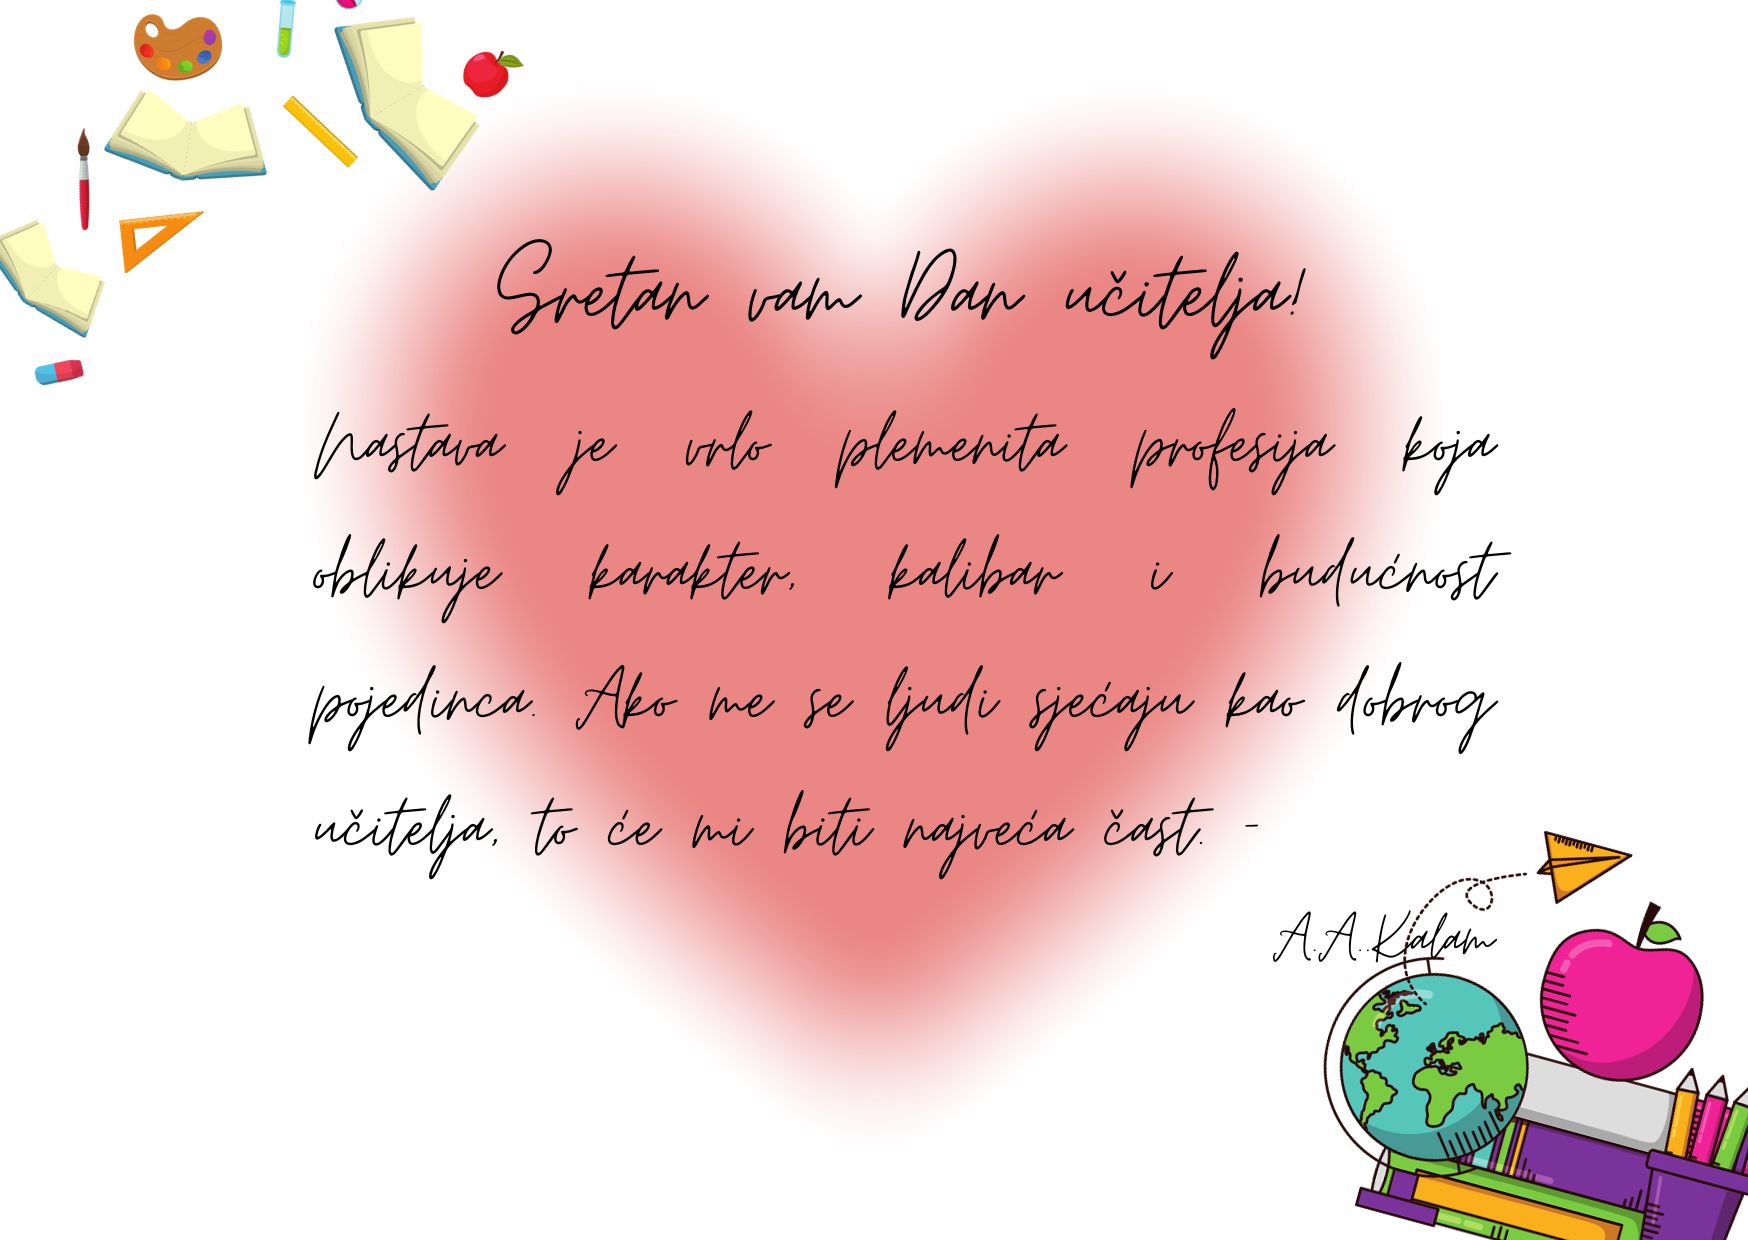 Sretan vam Dan učitelja!
Nastava je vrlo plemenita profesija koja
oblikuje karakter, kalibar i budućnost
pojedinca. Ako me se ljudi sjećaju kao dobrog
učitelja, to će mi biti najveća čast. -
A.A..Kalam